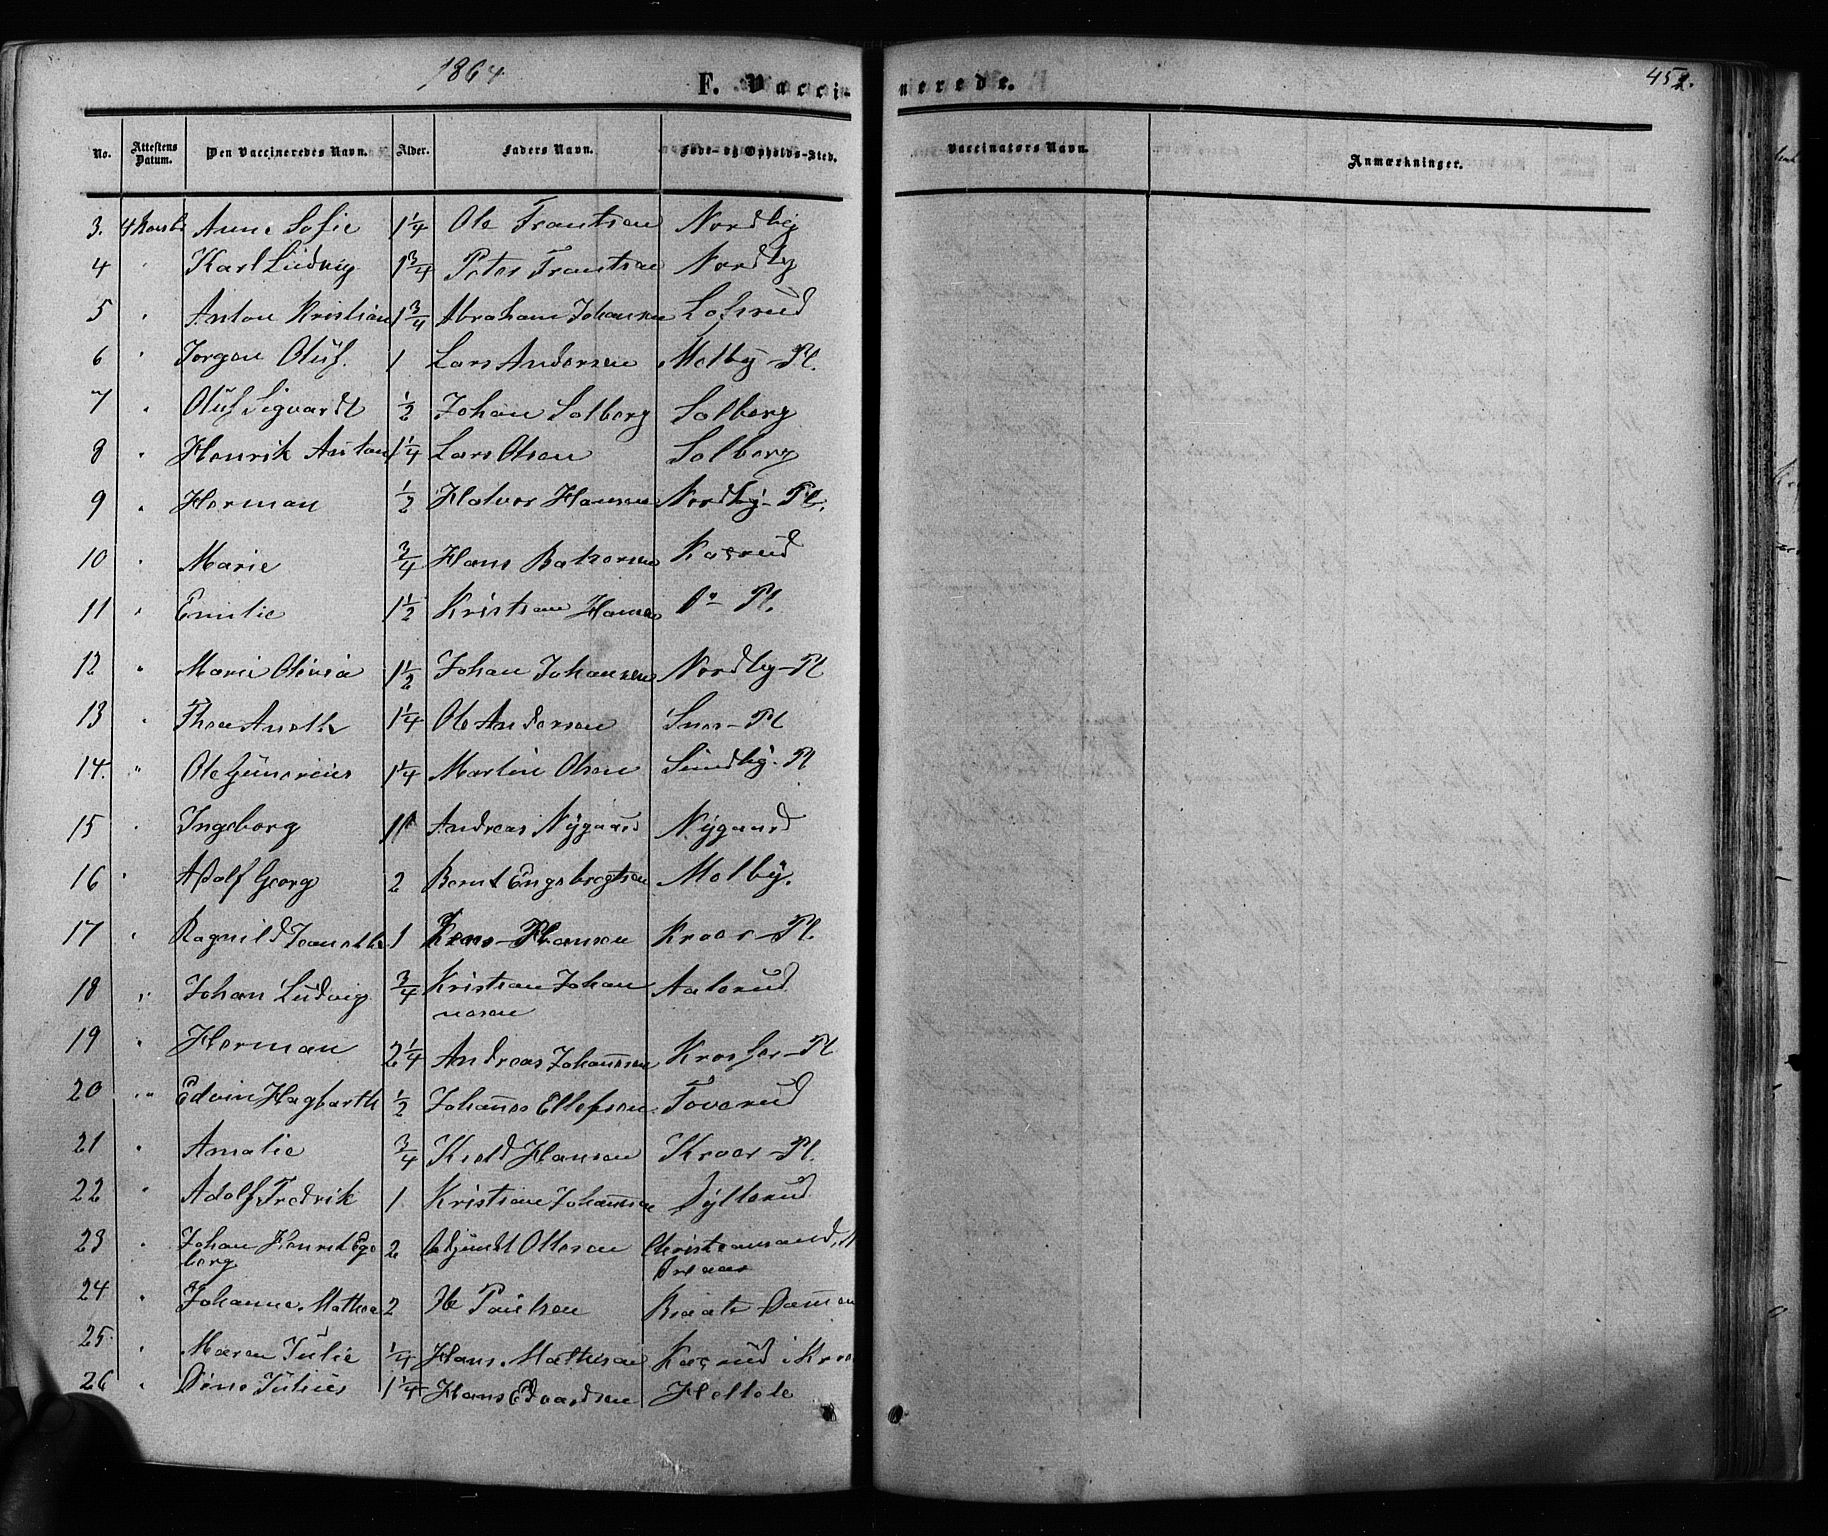 1864
F. Vacci-
nerede.
452.
No.
Attestens Datum.
Den Vaccineredes Navn.
Alder.
Faders Navn.
Føde- og Opholds-Sted.
Vaccinators Navn.
Anmærkninger.
3. Anne Sofie 1 1/4 Ole Frantsen Nordby
4 " Karl Ludvig 1 3/4 Peter Frantsen Nordby
5 " Anton Kristian 1 3/4 Abraham Johansen Lofsrud
6 " Jorgen Oluf. 1 Lars Andersen Melby-Pl.
7 " Oluf Sigvardt 1/2 Johan Solberg Solberg
8 " Henrik Anton 1 1/4 Lars Olsen Solberg
9 " Herman 1/2 Halvor Hansen Nordby-Pl.
10 " Marie 3/4 Hans Kaxrud
11 " Emilie 1 1/2 Kristian Hansen Do Pl.
12 " Marie Olivia 1 1/2 Johan Johansen Nordby-Pl
13 " Thea Aneth 1 1/4 Ole Andersen Snes-Pl
14. " Ole Gunerius 1 1/4 Martin Olsen Sundby-Pl
15 " Ingeborg Andreas Nygaard Nygaard
16 " Adolf Georg 2 Bernt Engebregtsen Melby.
17 " Ragnild Jeanette 1 Hansen Kroer-Pl.
18 " Johan Ludvig 3/4 Kristian Johan
nesen
19 " Herman 2 1/4 Andreas Johannesen
20 " Edvin Hagbarth 1/2 Johannes Ellefsen Toverud
21 " Amalie 3/4 Kield Hansen Kroer-Pl.
22 " Adolf Fredrik 1 Kristian Johannsen Dyllerud
23 " Johan Henrik Ege
berg 2 Ottesen Christiansand,
24 " Johanne Mathea 2 Paulsen
25 " Maren Julie 1/4 Hans Mathisen Kaxrud i Kroe
26 " Julius 1 1/4 Hans Edvardsen